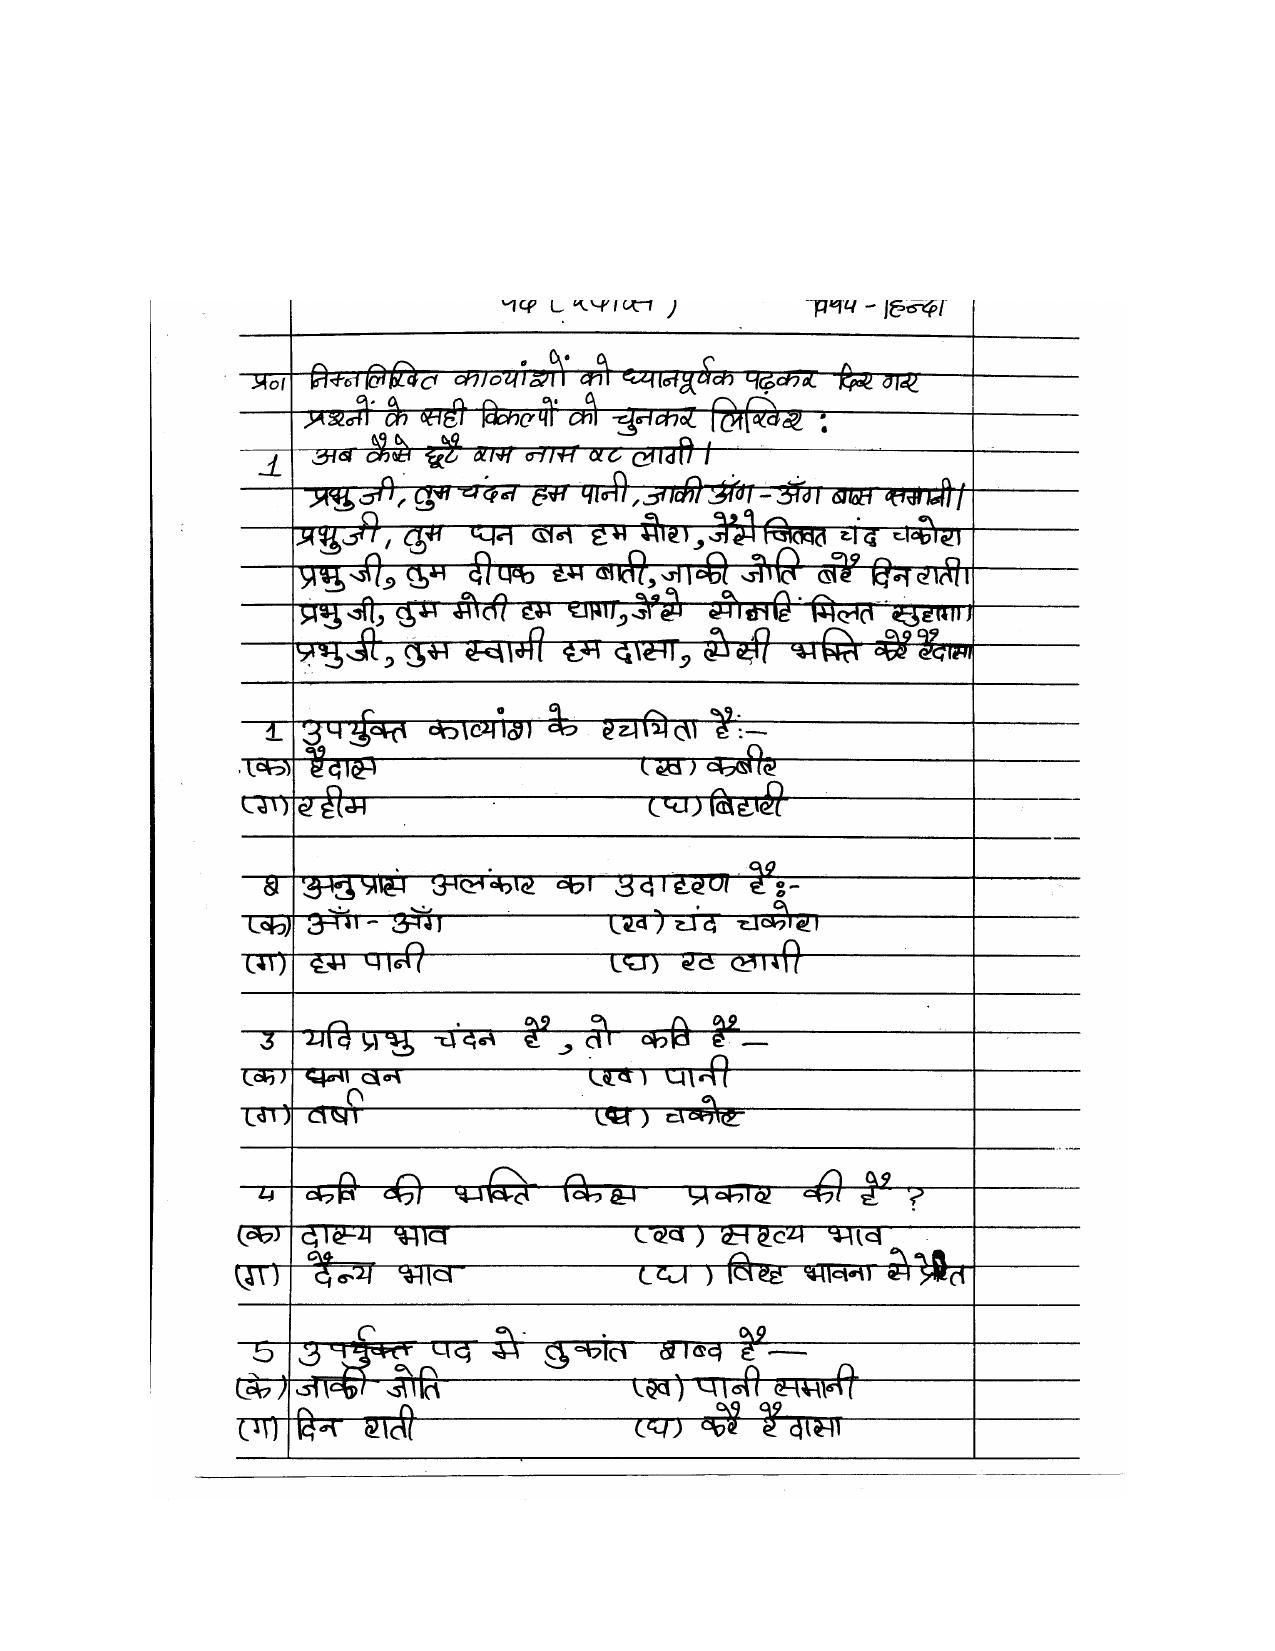 पद (रैदास) विषय - हिन्दी
प्र०1 निम्नलिखित काव्यांशों को ध्यानपूर्वक पढ़कर दिए गए
प्रश्नों के सही विकल्पों को चुनकर लिखिए :
1 अब कैसे छूटै राम नाम रट लागी।
प्रभु जी, तुम चंदन हम पानी, जाकी अँग-अँग बास समानी।
प्रभु जी, तुम घन बन हम मोरा, जैसे चितवत चंद चकोरा
प्रभु जी, तुम दीपक हम बाती, जाकी जोति बरै दिन राती।
प्रभु जी, तुम मोती हम धागा, जैसे सोनहिं मिलत सुहागा।
प्रभु जी, तुम स्वामी हम दासा, ऐसी भक्ति करै रैदासा
1 उपर्युक्त काव्यांश के रचयिता हैं:-
(क) रैदास (ख) कबीर
(ग) रहीम (घ) बिहारी
2 अनुप्रास अलंकार का उदाहरण है:-
(क) अँग-अँग (ख) चंद चकोरा
(ग) हम पानी (घ) रट लागी
3 यदि प्रभु चंदन है, तो कवि है —
(क) घना वन (ख) पानी
(ग) वर्षा (घ) चकोर
4 कवि की भक्ति किस प्रकार की है ?
(क) दास्य भाव (ख) सख्य भाव
(ग) दैन्य भाव (घ) विरह भावना से प्रेरित
5 उपर्युक्त पद में तुकांत शब्द है —
(क) जाकी जोति (ख) पानी समानी
(ग) दिन राती (घ) करै रैदासा